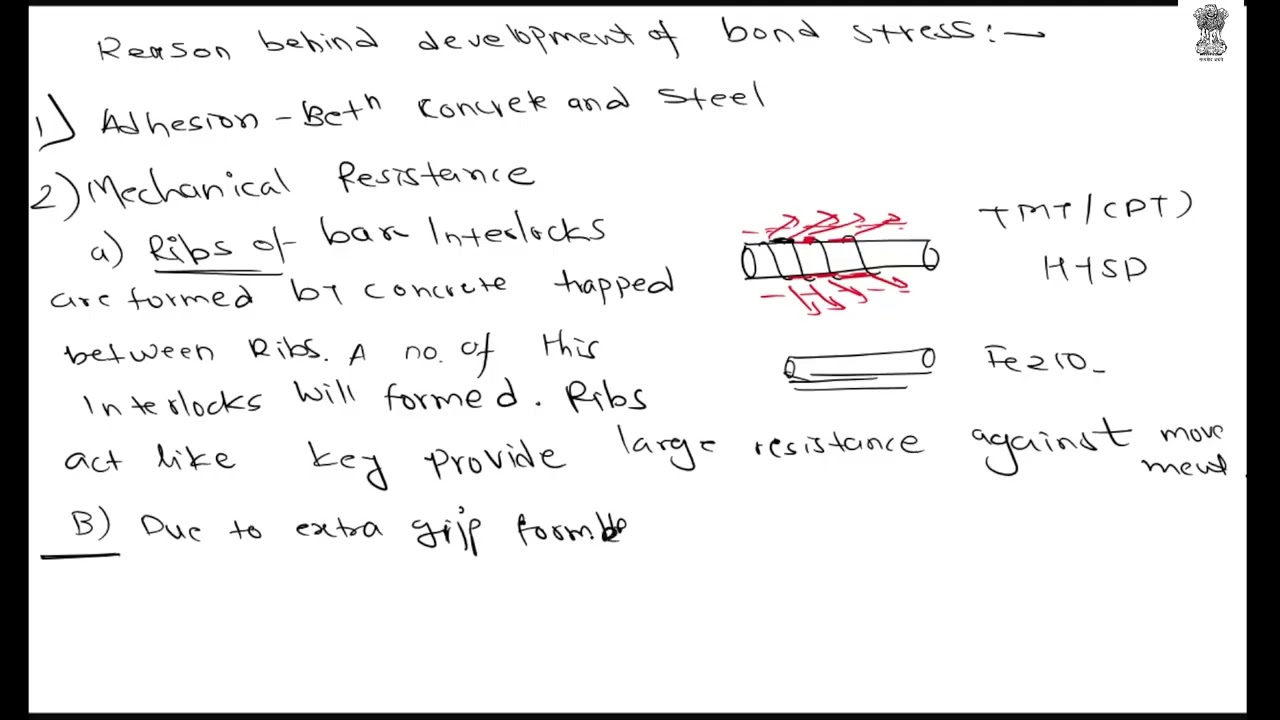 Reason behind development of bond stress:-
1) Adhesion - Betn Concrete and Steel
2) Mechanical Resistance
a) Ribs of bar Interlocks
are formed by concrete trapped
between Ribs. A no. of this
Interlocks will formed. Ribs
act like key provide large resistance against movement.
B) Due to extra grip
TMT/(CPT)
HYSD
Fe210